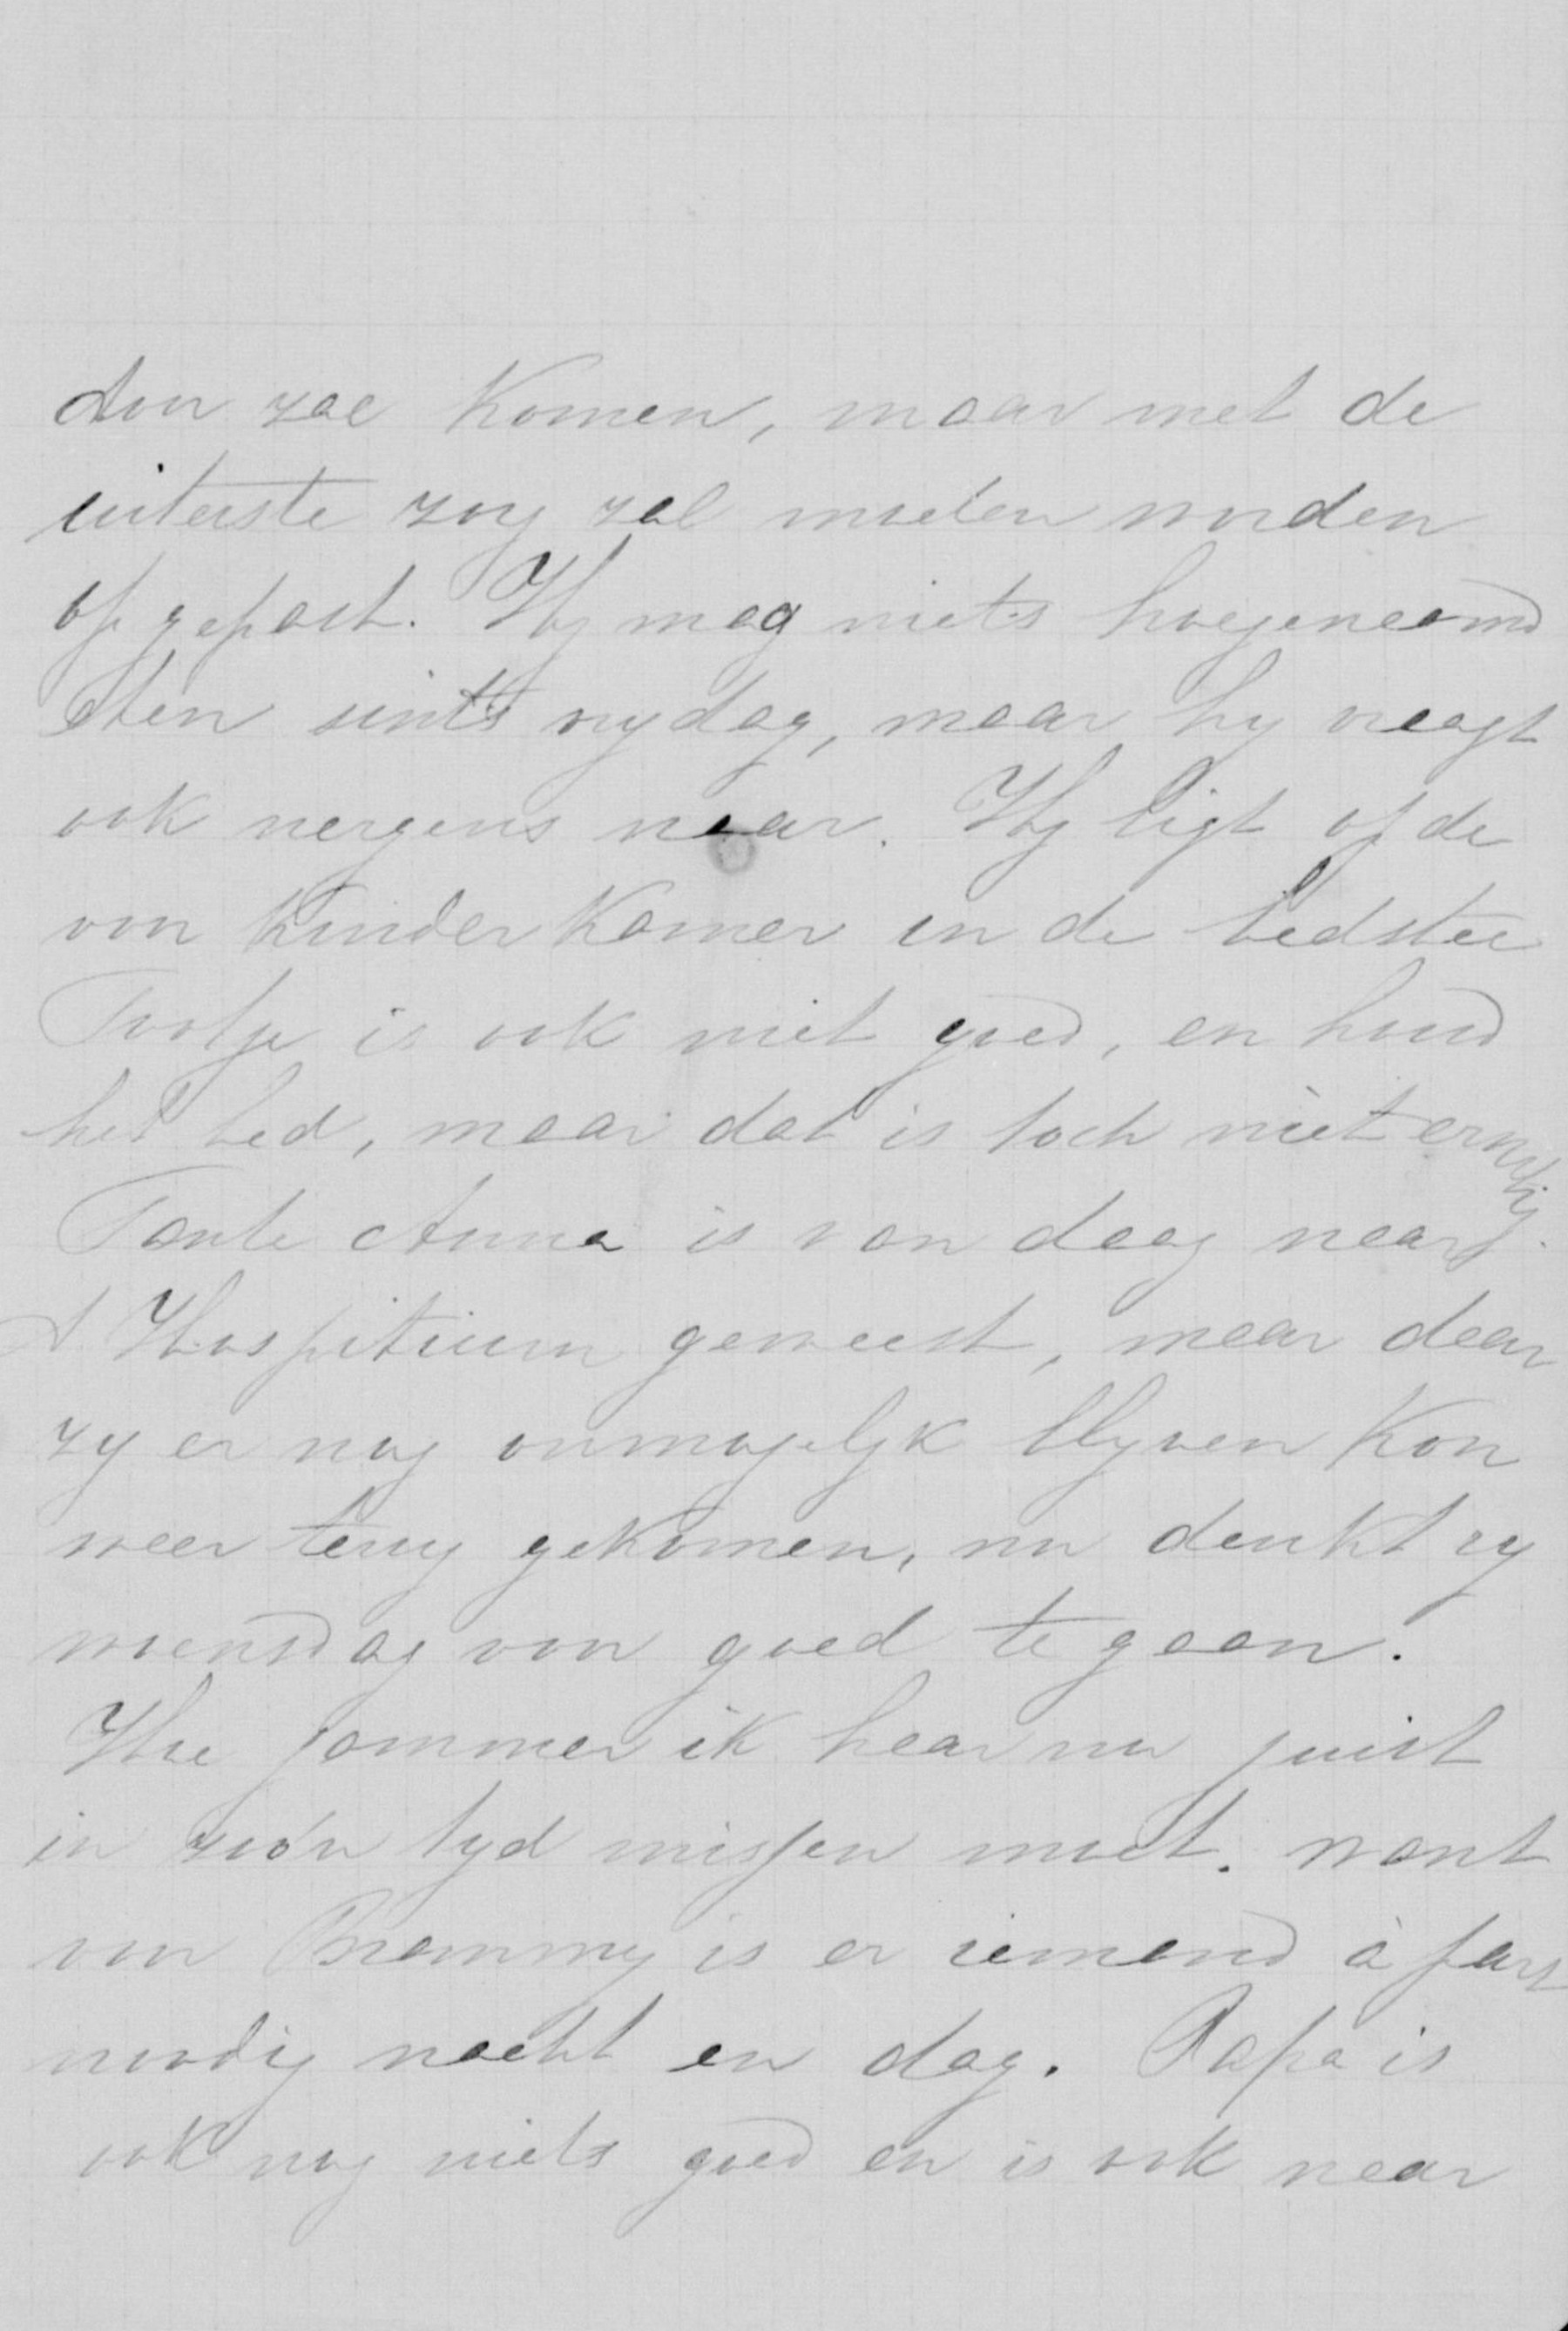 door zal komen, maar met de
uiterste zorg zal moeten worden
op gepast. Hy mag niets hoegenaamd
eten sints vrydag, maar hy vraagt
ook nergens naar. Hy ligt op de
voor kinder kamer in de bedstee
Tootje is ook niet goed, en houd
het bed, maar dat is toch niet ernstig.
Tante Anna is van daag naar
't Hospitium geweest, maar daar
zy er nog onmogelyk blyven kon
weer terug gekomen, nu denkt zy
woensdag voor goed te gaan.
Hoe jammer ik haar nu juist
in zoo'n tyd missen moet. want
voor Brammy is er iemand à part
noodig nacht en dag. Papa is
ook nog niets goed en is ook naar